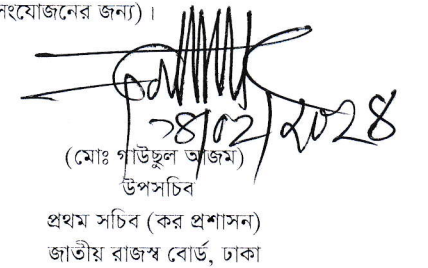 সংযোজনের জন্য)।
১৪/০২/২০২৪
(মোঃ গাউছুল আজম)
উপসচিব
প্রথম সচিব (কর প্রশাসন)
জাতীয় রাজস্ব বোর্ড, ঢাকা